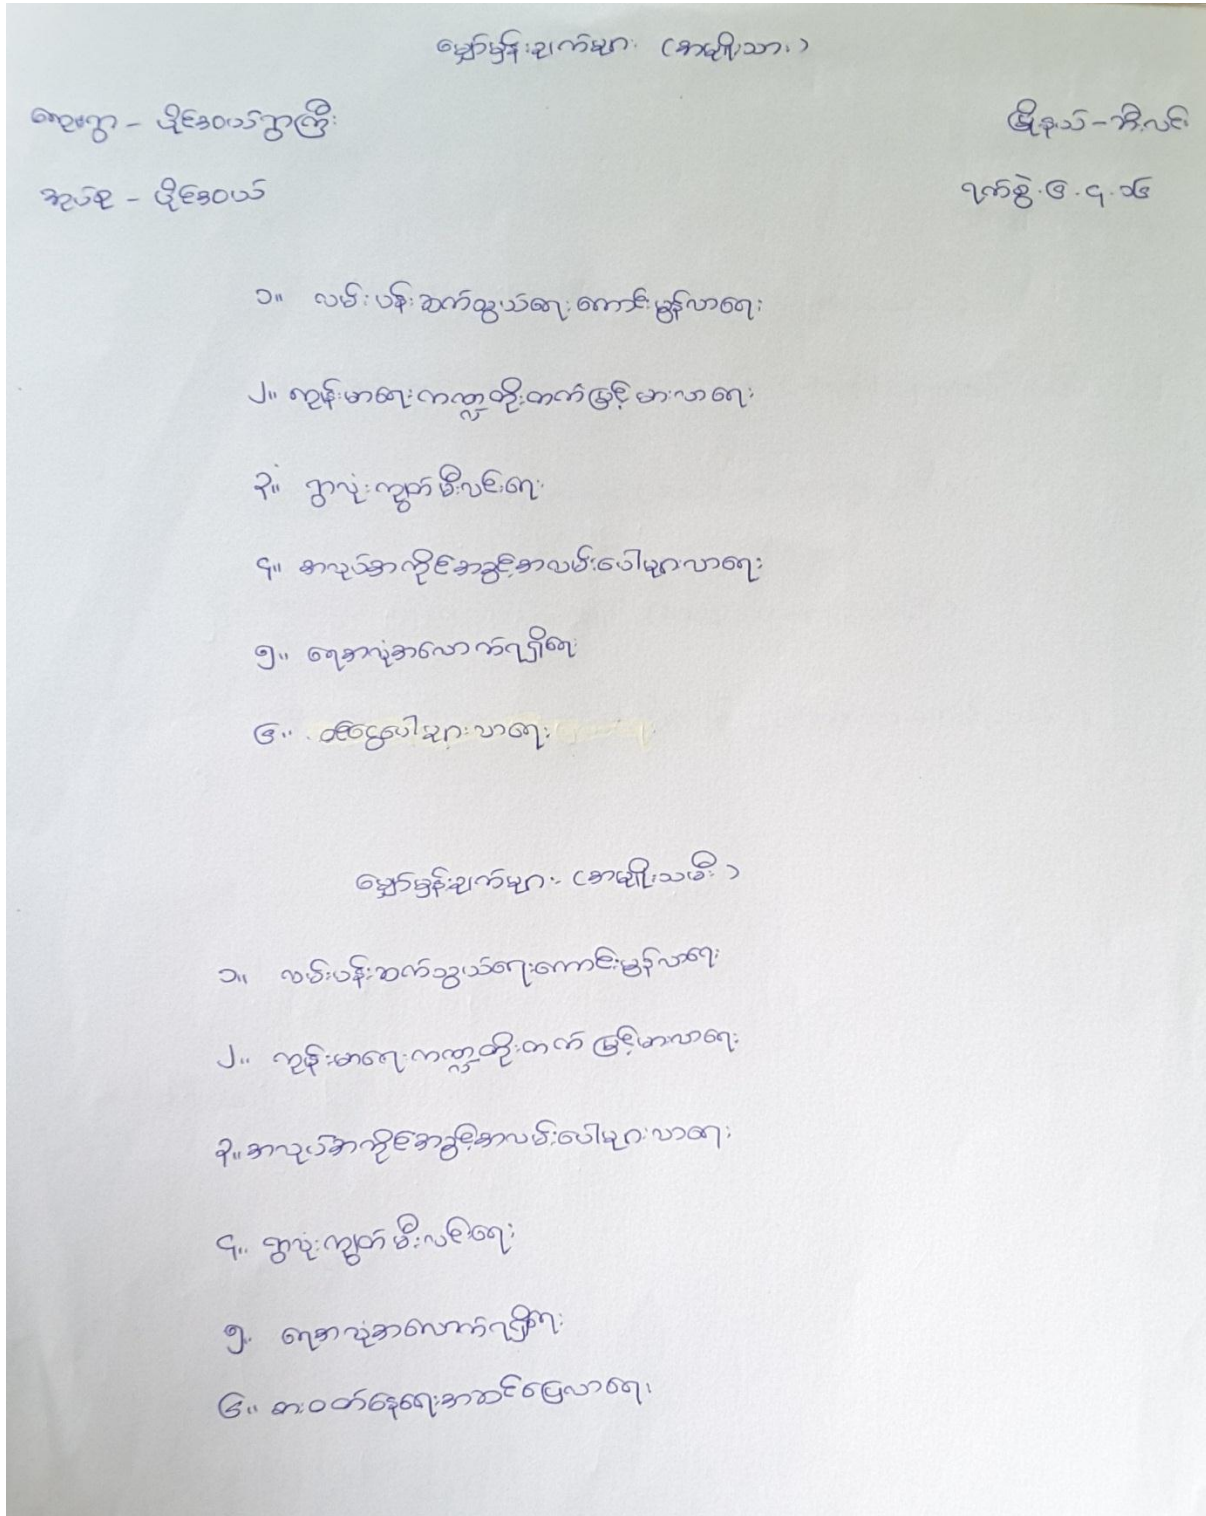 မျှော်မှန်းချက်များ (အမျိုးသား)
ကျေးရွာ - ပိုင်အဝယ်ရွာကြီး မြို့နယ် - ဘီးလင်း
အုပ်စု - ပိုင်အဝယ် ရက်စွဲ. ၆. ၄. ၁၆
၁။ လမ်းပန်းဆက်သွယ်ရေးကောင်းမွန်လာရေး
၂။ ကျန်းမာရေးကဏ္ဍတိုးတက်မြင့်မားလာရေး
၃။ ရွာလုံးကျွတ်မီးလင်းရေး
၄။ အလုပ်အကိုင်အခွင့်အလမ်းပေါများလာရေး
၅။ ရေအလုံအလောက်ရရှိရေး
၆။ ဝင်ငွေပေါများလာရေး
မျှော်မှန်းချက်များ (အမျိုးသမီး)
၁။ လမ်းပန်းဆက်သွယ်ရေးကောင်းမွန်လာရေး
၂။ ကျန်းမာရေးကဏ္ဍတိုးတက်မြင့်မားလာရေး
၃။ အလုပ်အကိုင်အခွင့်အလမ်းပေါများလာရေး
၄။ ရွာလုံးကျွတ်မီးလင်းရေး
၅။ ရေအလုံအလောက်ရရှိရေး
၆။ စားဝတ်နေရေးအဆင်ပြေလာရေး